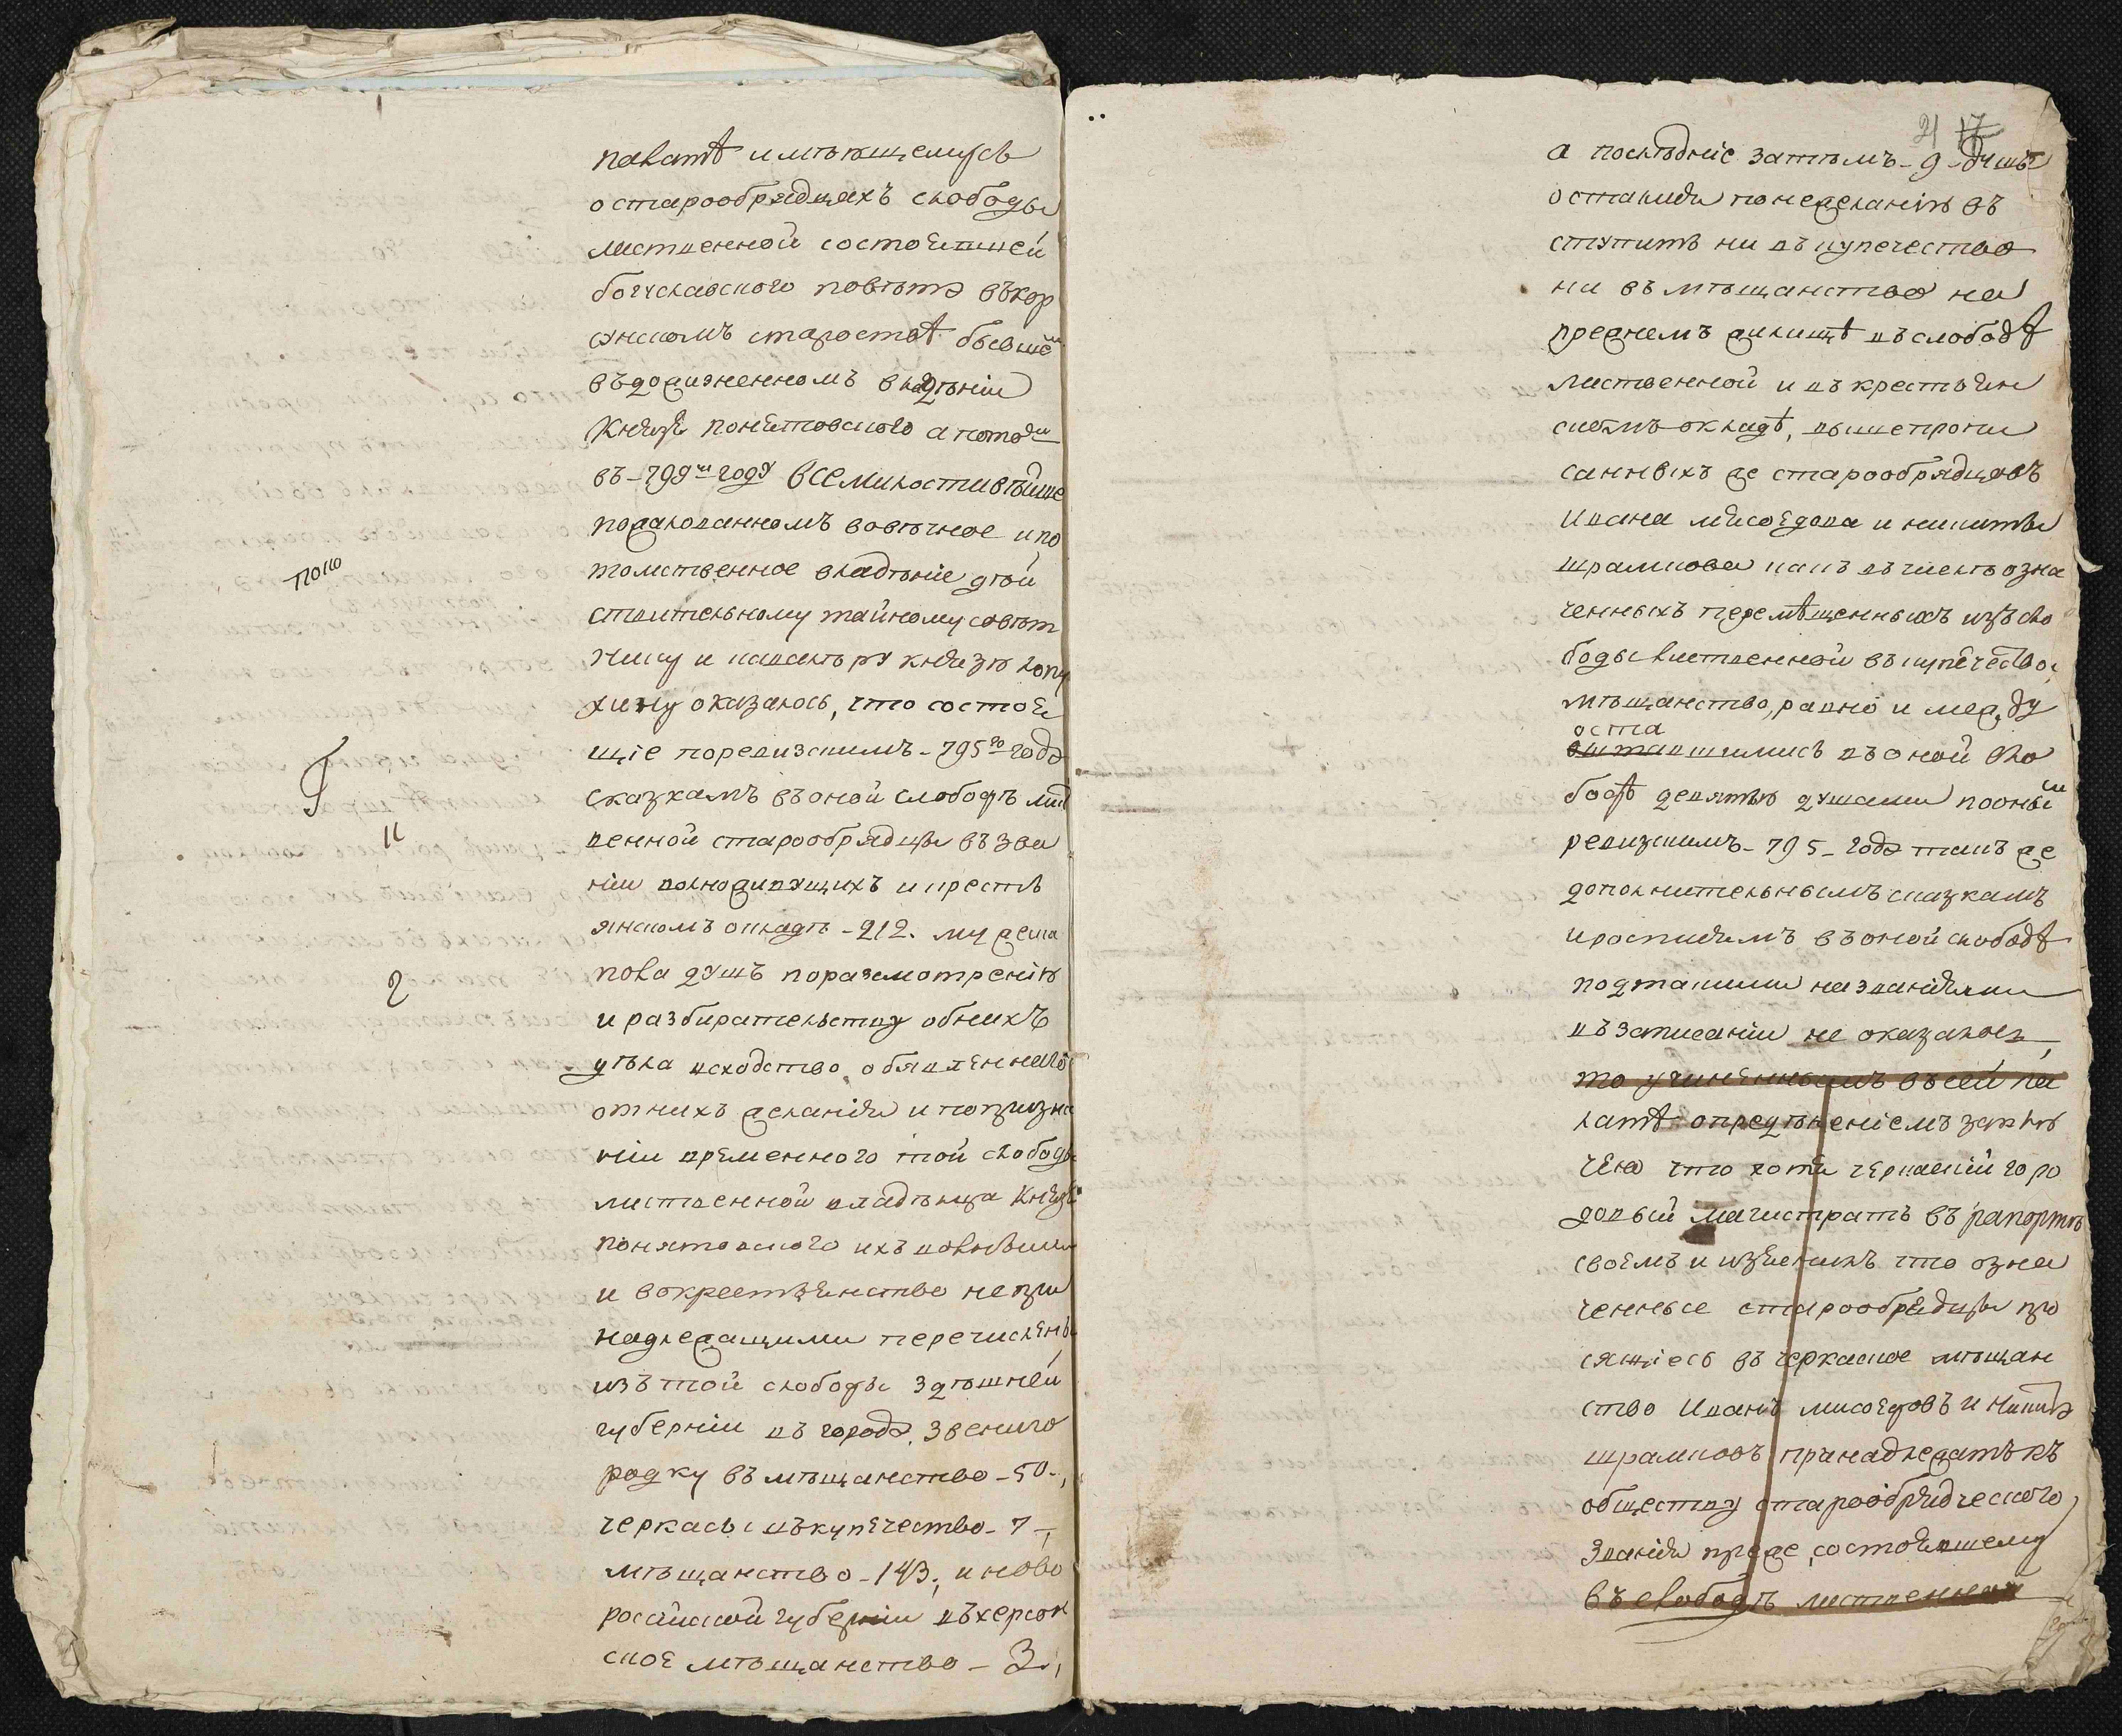 палатѣ имѣющемуся
о старообрядцахъ слободы
лиственной состоявшей
богуславского повѣта въ кор
сунскомъ староствѣ бывшемъ
въ дожизненномъ владѣніи
Князя понятовского а потомъ
въ - 799м годУ всемилостивѣйше
пожалованномъ вовѣчное и по
томственное владѣніе дѣй
ствительному тайному совѣт
нику и кавалѣрУ князю лопу
хину оказалось, что состоя
щіе поревизскимъ - 795го года
сказкамъ въ оной слободѣ лист
венной старообрядцы въ зва
ніи вольноживущихъ и кресть
янскомъ окладѣ - 212. мужеска
пола дУшъ поразсмотренію
и разбирательству обнихъ
дѣла всходство объявленнаго
отнихъ желанія и попризна
нію временного той слободы
лиственной владѣльца Князя
понятовского ихъ вольными
и вокрестьянство непри
надлежащими перечислены
изъ той слободы здѣшней
губерніи въ города, звениго
родку въ мѣщанство - 50.,
черкасы въ купечество - 7 -,
мѣщанство - 143., и ново
россійской губерніи въ херсон
ское мѣщанство - 3.,
поло
и
2
21 17
а послѣдніе затѣмъ - 9 - душъ
остались понежеланію въ
ступить ни въ купечество
ни въ мѣщанство на
прежнемъ жилищѣ въ слободѣ
листвѣнной и въ крестьян
скомъ окладѣ, вышепропи
санныхъ же старообрядцовъ
ивана мясоедова и никиты
шрамкова какъ въ числѣ озна
ченныхъ перемѣщенныхъ изъ сло
боды листвѣнной въ купечество,
мѣщанство, равно и между
оста
оставшимись въ оной сло
бодѣ девятью дУшами поонымъ
ревизскимъ - 795 - года такъ же
дополнительнымъ сказкамъ
и росписямъ въ оной слободѣ
подтакими названіями
въ записаніи не оказалось,
то учиненнымъ въ сей па
латѣ опредѣленіемъ заклю
чено что хотя черкаскій горо
довый магистратъ въ рапортѣ
своемъ и изъяснилъ что озна
ченные старообрядцы про
сящіесь въ черкаское мѣщан
ство Иванъ мисоедовъ и Никита
шрамковъ принадлежатъ къ
обществу старообрядческого
званія прежде состоявшему
въ слободѣ листвѣнной